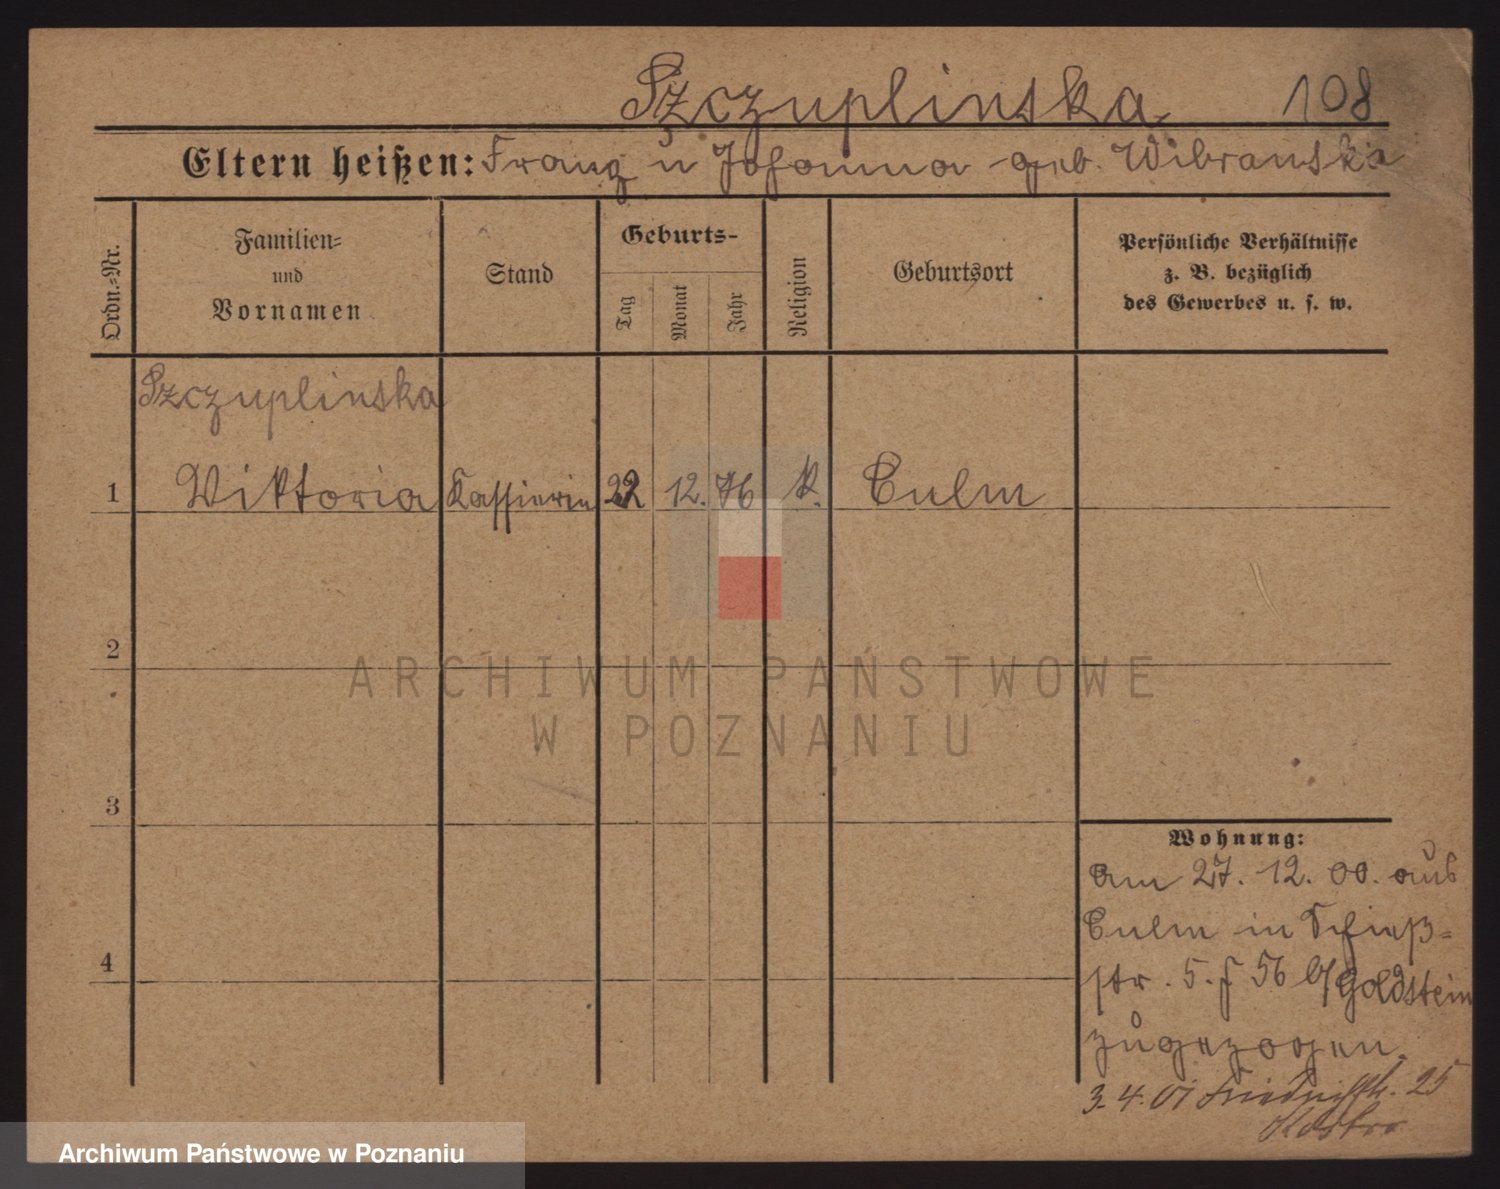 Szczuplinska 108
Eltern heißen: Franz u Johanna geb. Wibranska
Ordn.-Nr.
Familien-
und
Vornamen
Stand
Geburts-
Tag
Monat
Jahr
Religion
Geburtsort
Persönliche Verhältnisse
z. B. bezüglich
des Gewerbes u. s. w.
Szczuplinska
1 Viktoria Kassirerin 22 12. 76 k. Culm
2
3
4
ARCHIWUM PAŃSTWOWE
W POZNANIU
Wohnung:
Am 27. 12. 00. aus
Culm in Schieß-
str. 5. 56 b/Goldstein
zugezogen.
3.4.01 25
Archiwum Państwowe w Poznaniu